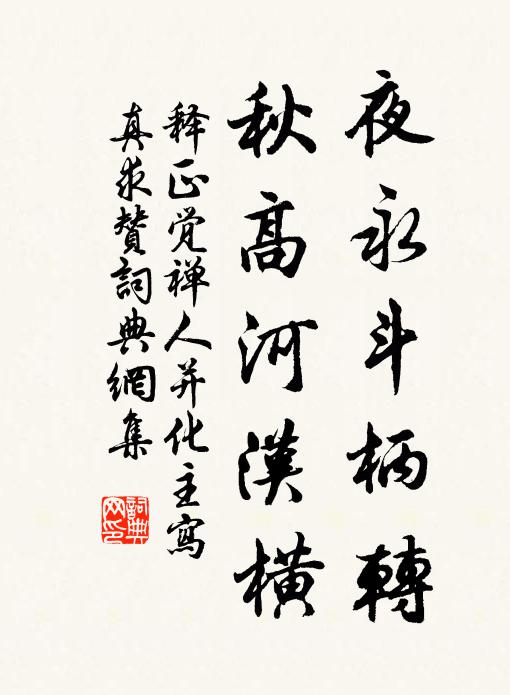 夜永斗柄轉
秋高河漢橫
释正觉禅人并化主寫
真求贊詞典網集
詞典网印